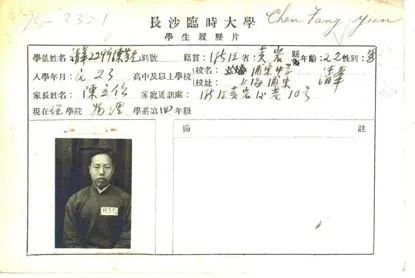 75-2321 Chen Fang Yun
長沙臨時大學
學生履歷片
學號姓名 清華2299陳芳允 別號 籍貫:浙江省:黃岩縣 年齡:22 性別:男
入學年月:23 高中及以上學校(校名:浦東中學 清華
(校址:上海浦東
家長姓名:陳立信 家庭通訊處:浙江黃岩 10号
現在理學院 物理 學系第 年級
備 註